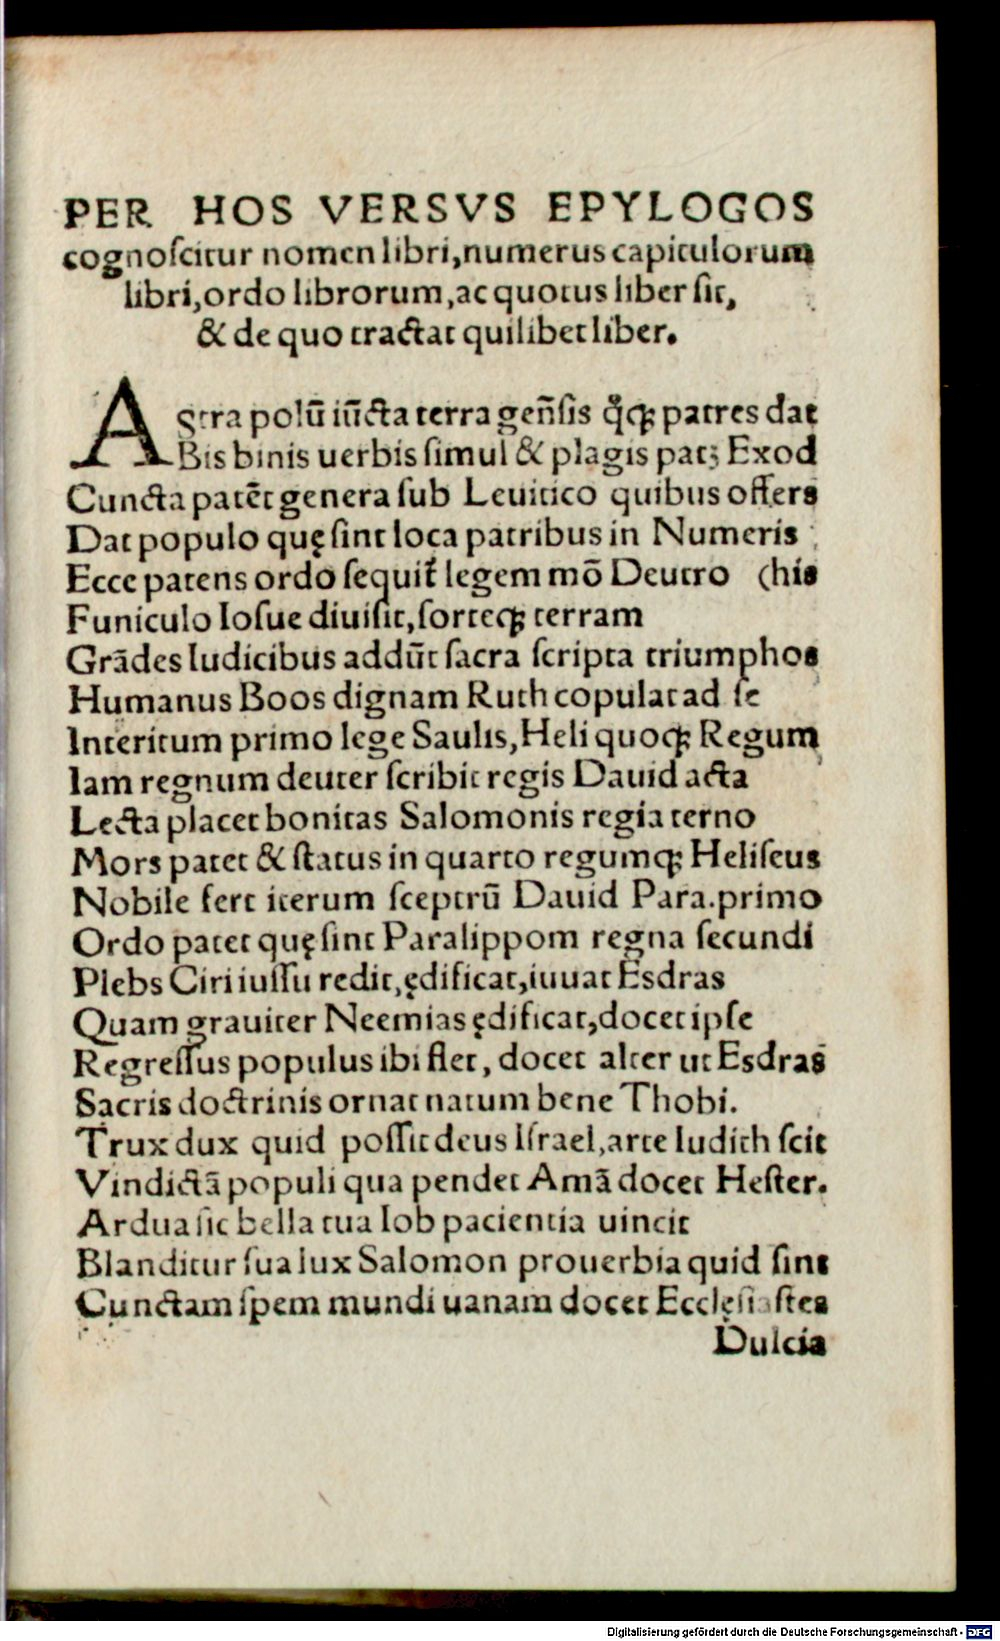 PER HOS VERSVS EPYLOGOS
cognoſcitur nomen libri, numerus capitulorum
libri, ordo librorum, ac quotus liber ſit,
& de quo tractat quilibet liber.
Aſtra polū iūcta terra geñſis q̊qꝫ patres dat
Bis binis uerbis ſimul & plagis patꝫ Exod
Cuncta patēt genera ſub Leuitico quibus offers
Dat populo quę ſint loca patribus in Numeris
Ecce patens ordo ſequit̃ legem mō Deutro (his
Funiculo Ioſue diuiſit, ſorteqꝫ terram
Grādes Iudicibus addūt ſacra ſcripta triumphos
Humanus Boos dignam Ruth copulat ad ſe
Interitum primo lege Saulis, Heli quoqꝫ Regum
Iam regnum deuter ſcribit regis Dauid acta
Lecta placet bonitas Salomonis regia terno
Mors patet & ſtatus in quarto regumqꝫ Heliſeus
Nobile fert iterum ſceptrū Dauid Para. primo
Ordo patet quę ſint Paralippom regna ſecundi
Plebs Ciri iuſſu redit, ędificat, iuuat Esdras
Quam grauiter Neemias ędificat, docet ipſe
Regreſſus populus ibi flet, docet alter ut Esdras
Sacris doctrinis ornat natum bene Thobi.
Trux dux quid poſſit deus Iſrael, arte Iudith ſcit
Vindictā populi qua pendet Amā docet Heſter.
Ardua ſic bella tua Iob pacientia uincit
Blanditur ſua lux Salomon prouerbia quid ſint
Cunctam ſpem mundi uanam docet Eccleſiaſtes
Dulcia
Digitalisierung gefördert durch die Deutsche Forschungsgemeinschaft - DFG